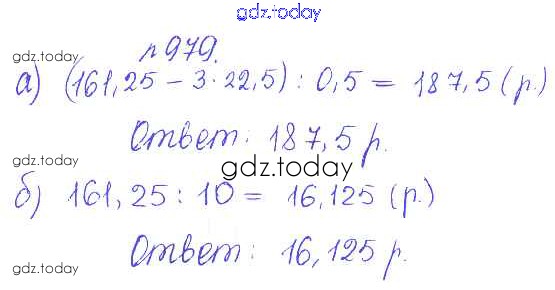 gdz.today
gdz.today
№ 979.
а) (161,25 - 3 · 22,5) : 0,5 = 187,5 (р.)
Ответ: 187,5 р.
gdz.today
gdz.today
б) 161,25 : 10 = 16,125 (р.)
Ответ: 16,125 р.
gdz.today
gdz.today